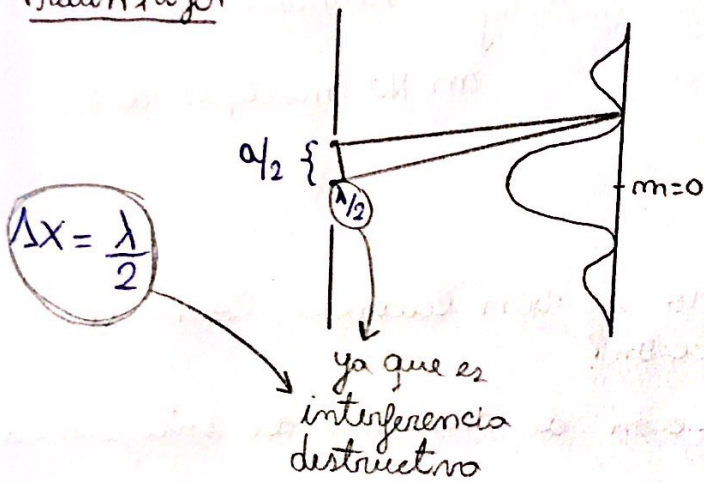 a/2 {
λ/2
m=0
Δx = λ/2
ya que es
interferencia
destructiva